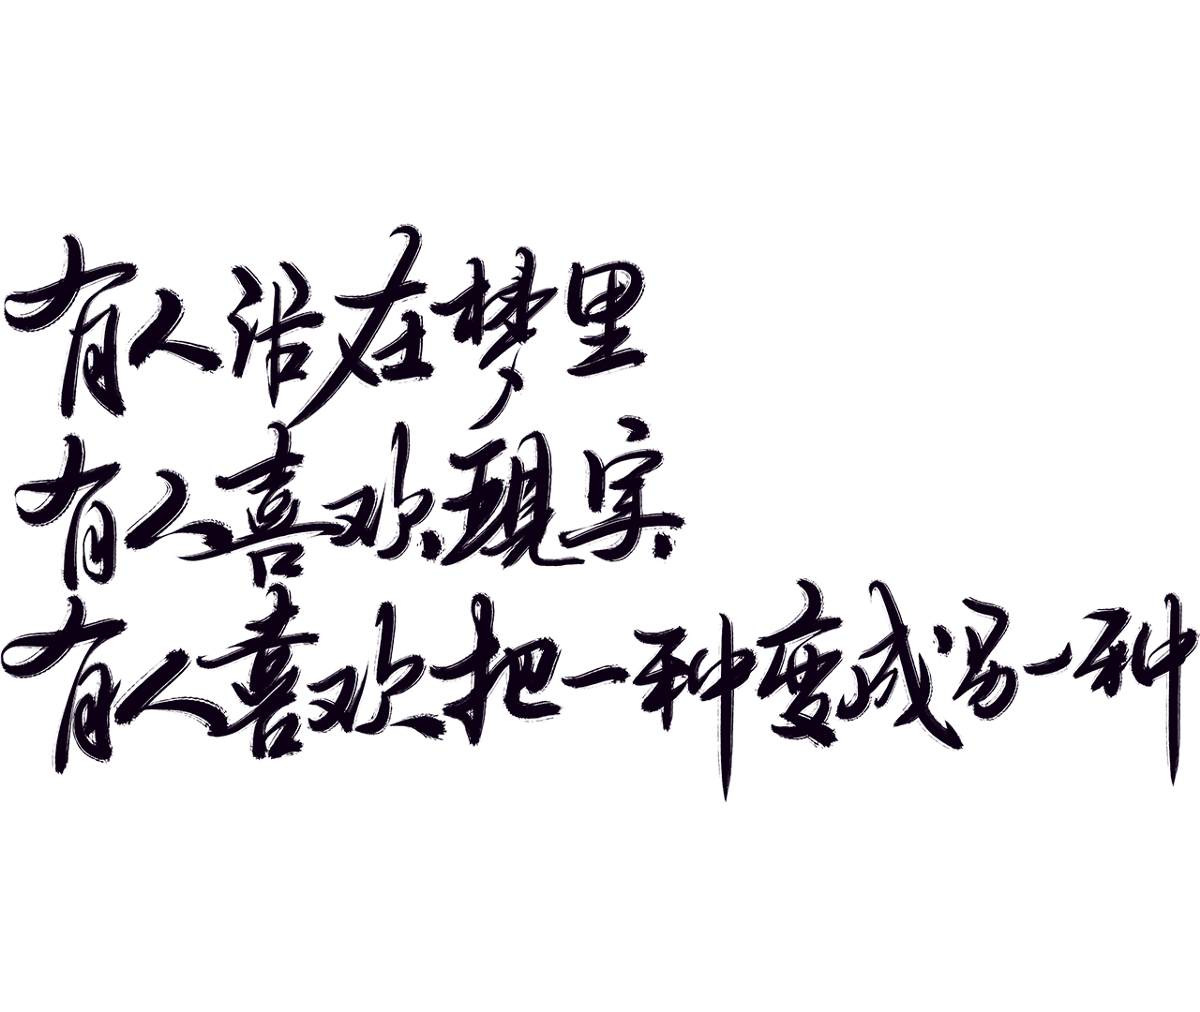 有人活在梦里
有人喜欢现实
有人喜欢把一种变成另一种